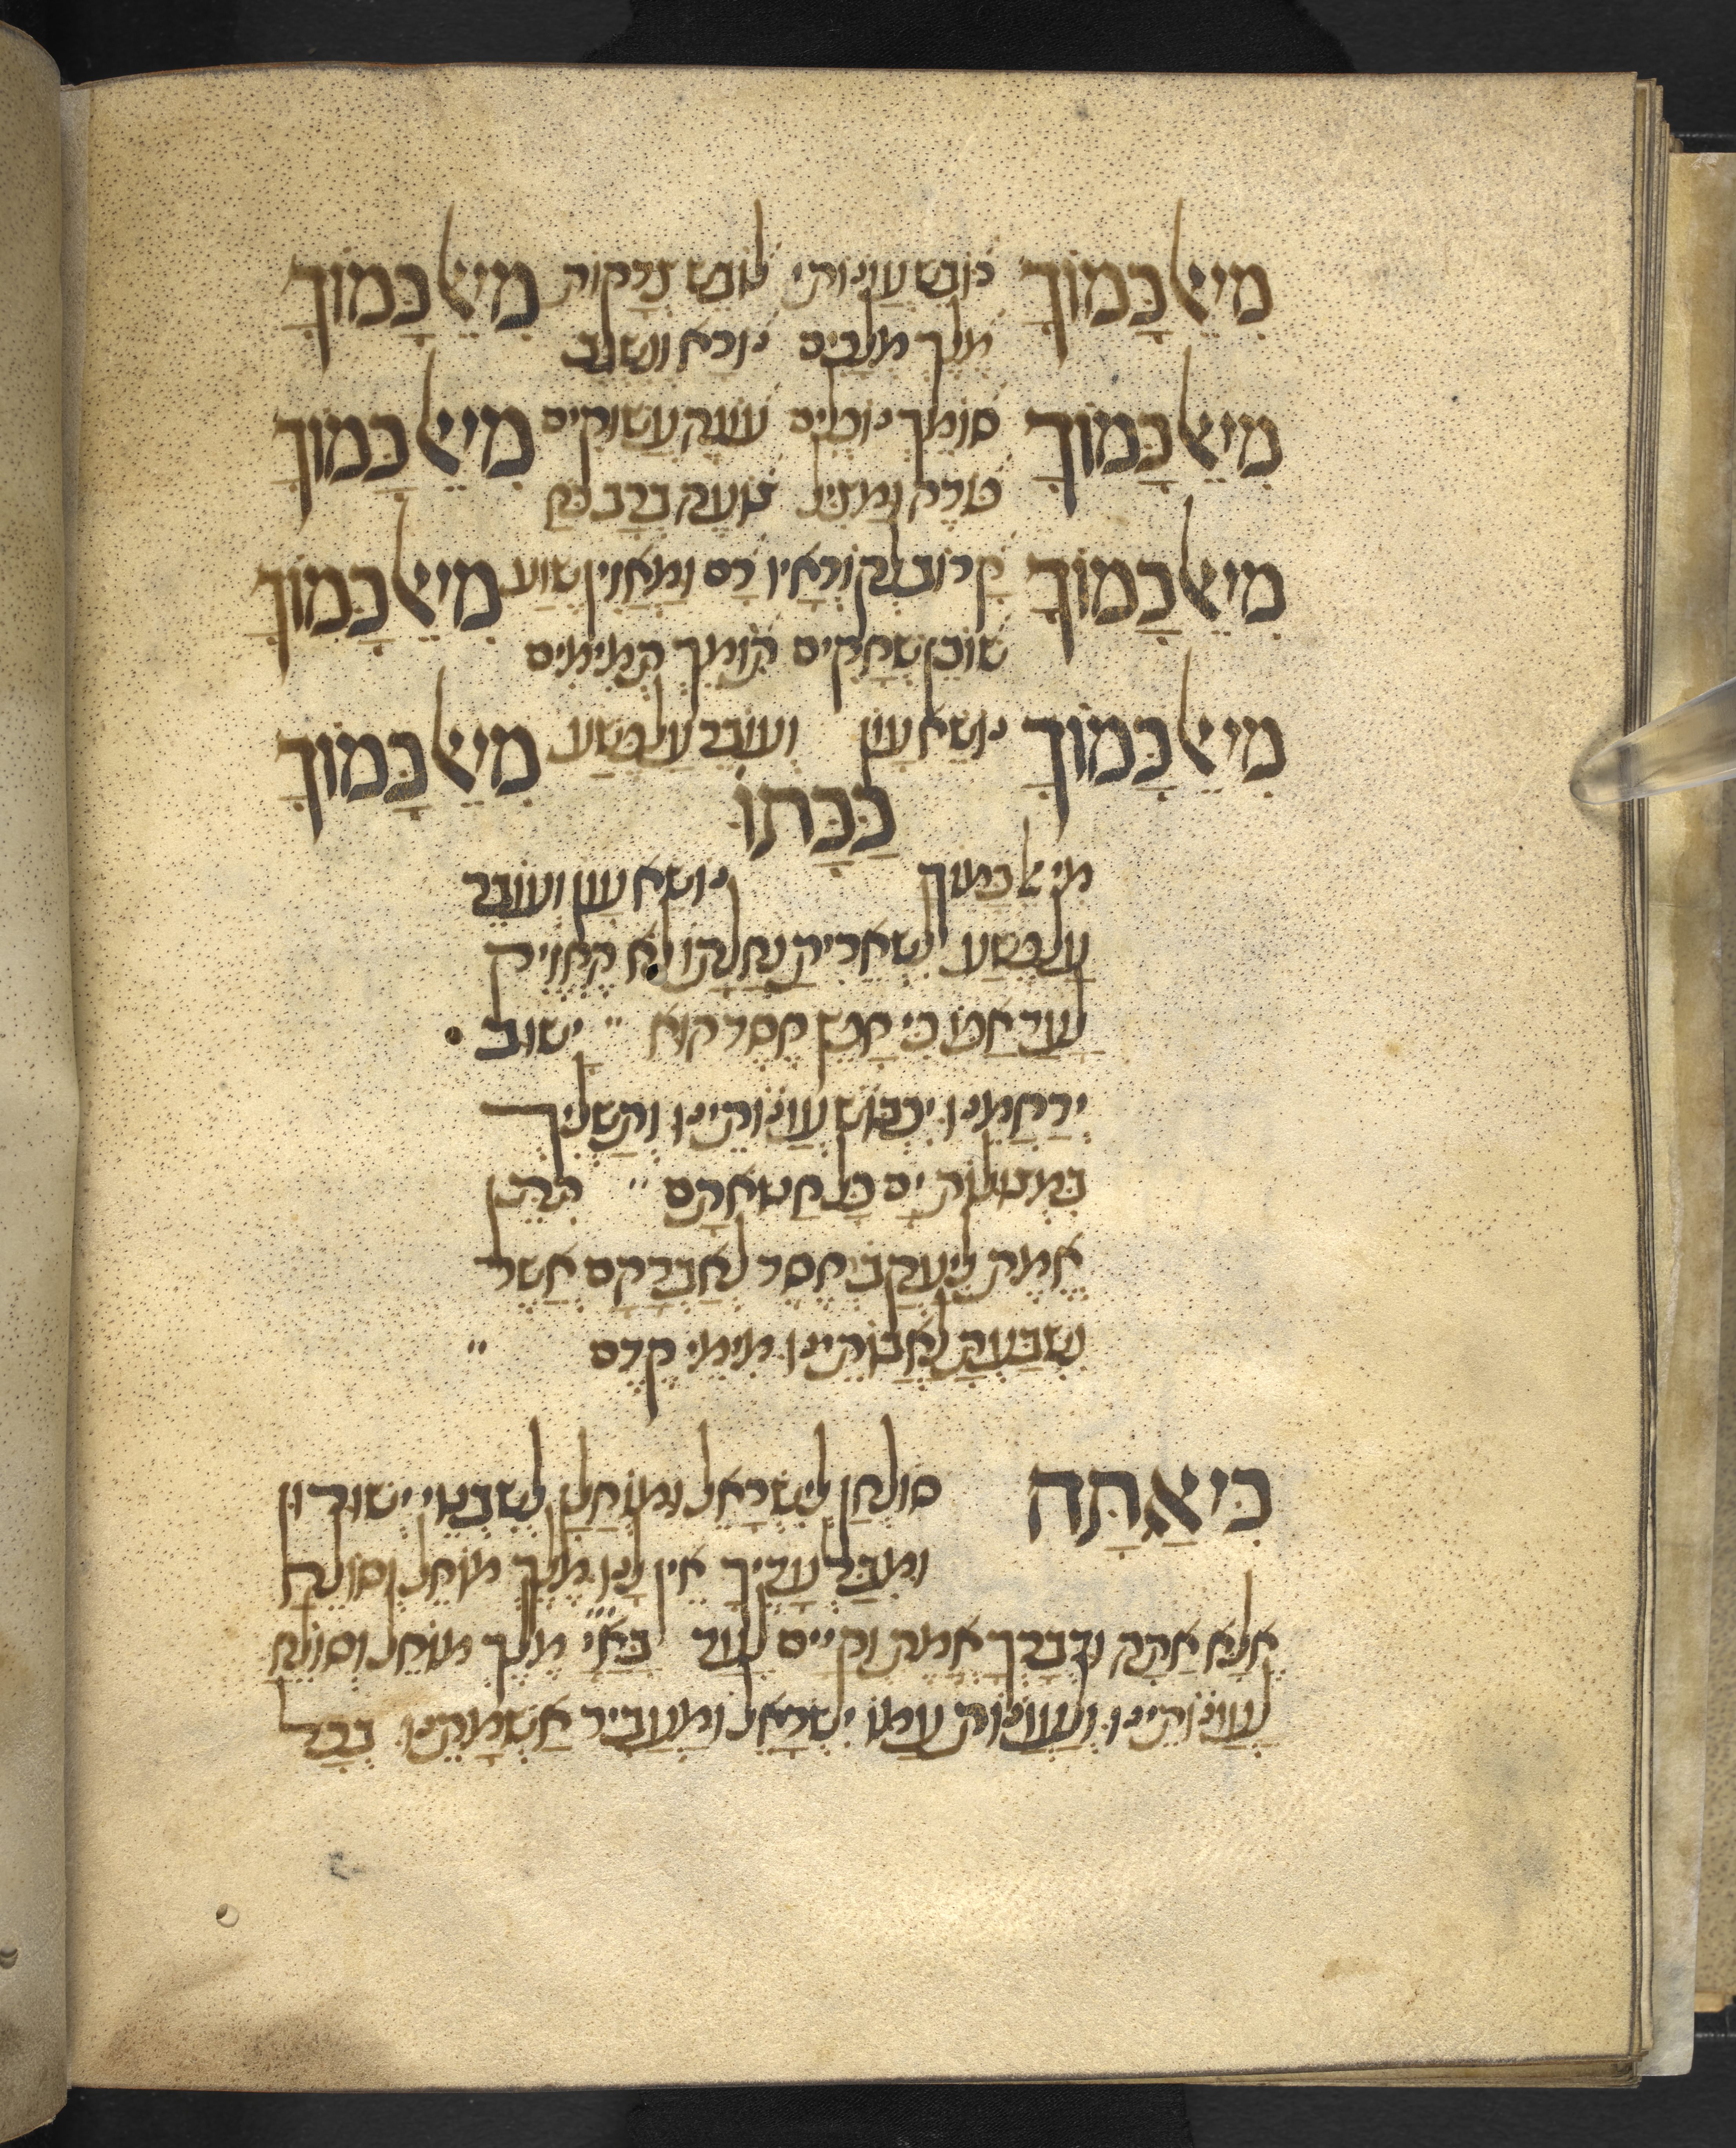 מי אל כמוך כובש עונותי לובש צדקות מי אל כמוך
מלך מלכים נורא ונשגב
מי אל כמוך סומך נופלים עונה עשוקים מי אל כמוך
פודה ומציל צועה ברב כח
מי אל כמוך קרוב לקוראיו רם ומאזין שוע מי אל כמוך
שוכן שחקים תומך תמימים
מי אל כמוך נושא עון ועובר על פשע מי אל כמוך
ככתו
מי אל כמוך נושא עון ועובר
על פשע לשארית נחלתו לא החזיק
לעד אפו כי חפץ חסד הוא " ישוב
ירחמנו יכבוש עונותינו ותשליך
במצולות ים כל חטאתם " תתן
אמת ליעקב חסד לאברהם אשר
נשבעת לאבותינו מימי קדם "
כי אתה סולחן לישראל ומוחלן לשבטי ישורון
ומבלעדיך אין לנו מלך מוחל וסולח
אלא אתה ודברך אמת וקיים לעד באי מלך מוחל וסולח
לעונותינו ולעונות עמו ישראל ומעביר אשמתינו בכל